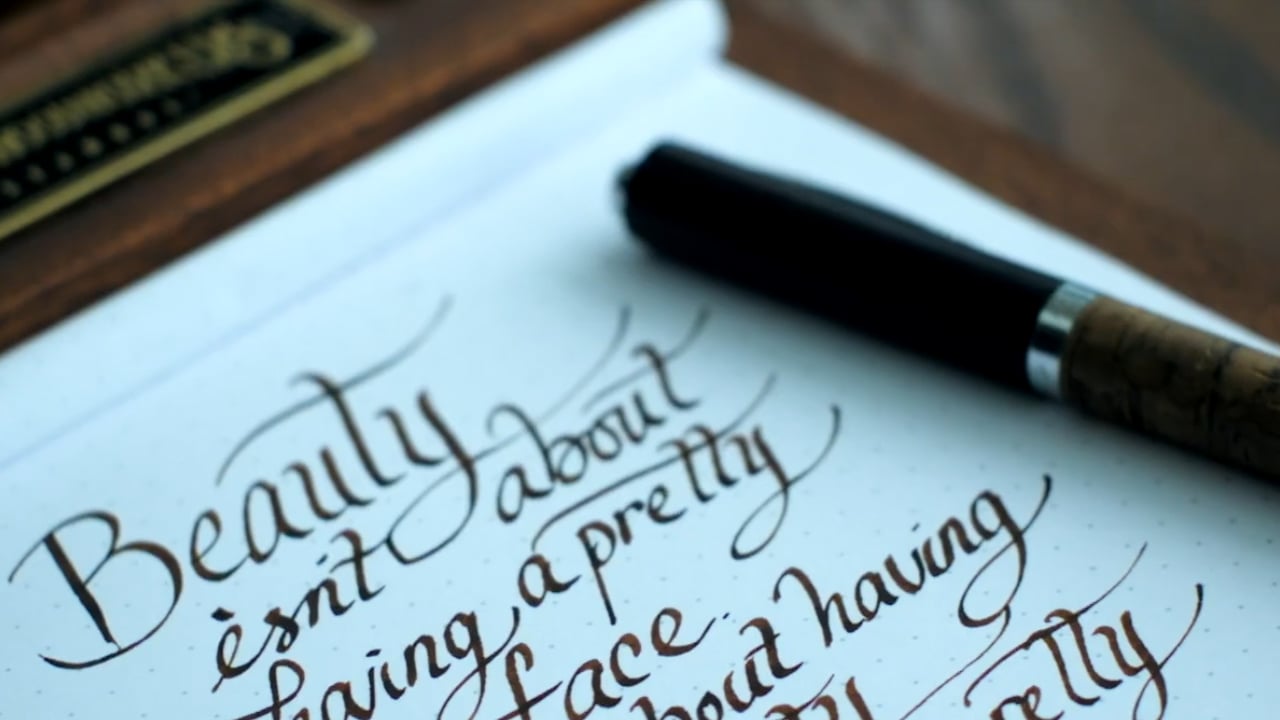 Beauty
isn't about
having a pretty
face.
bout having
retty